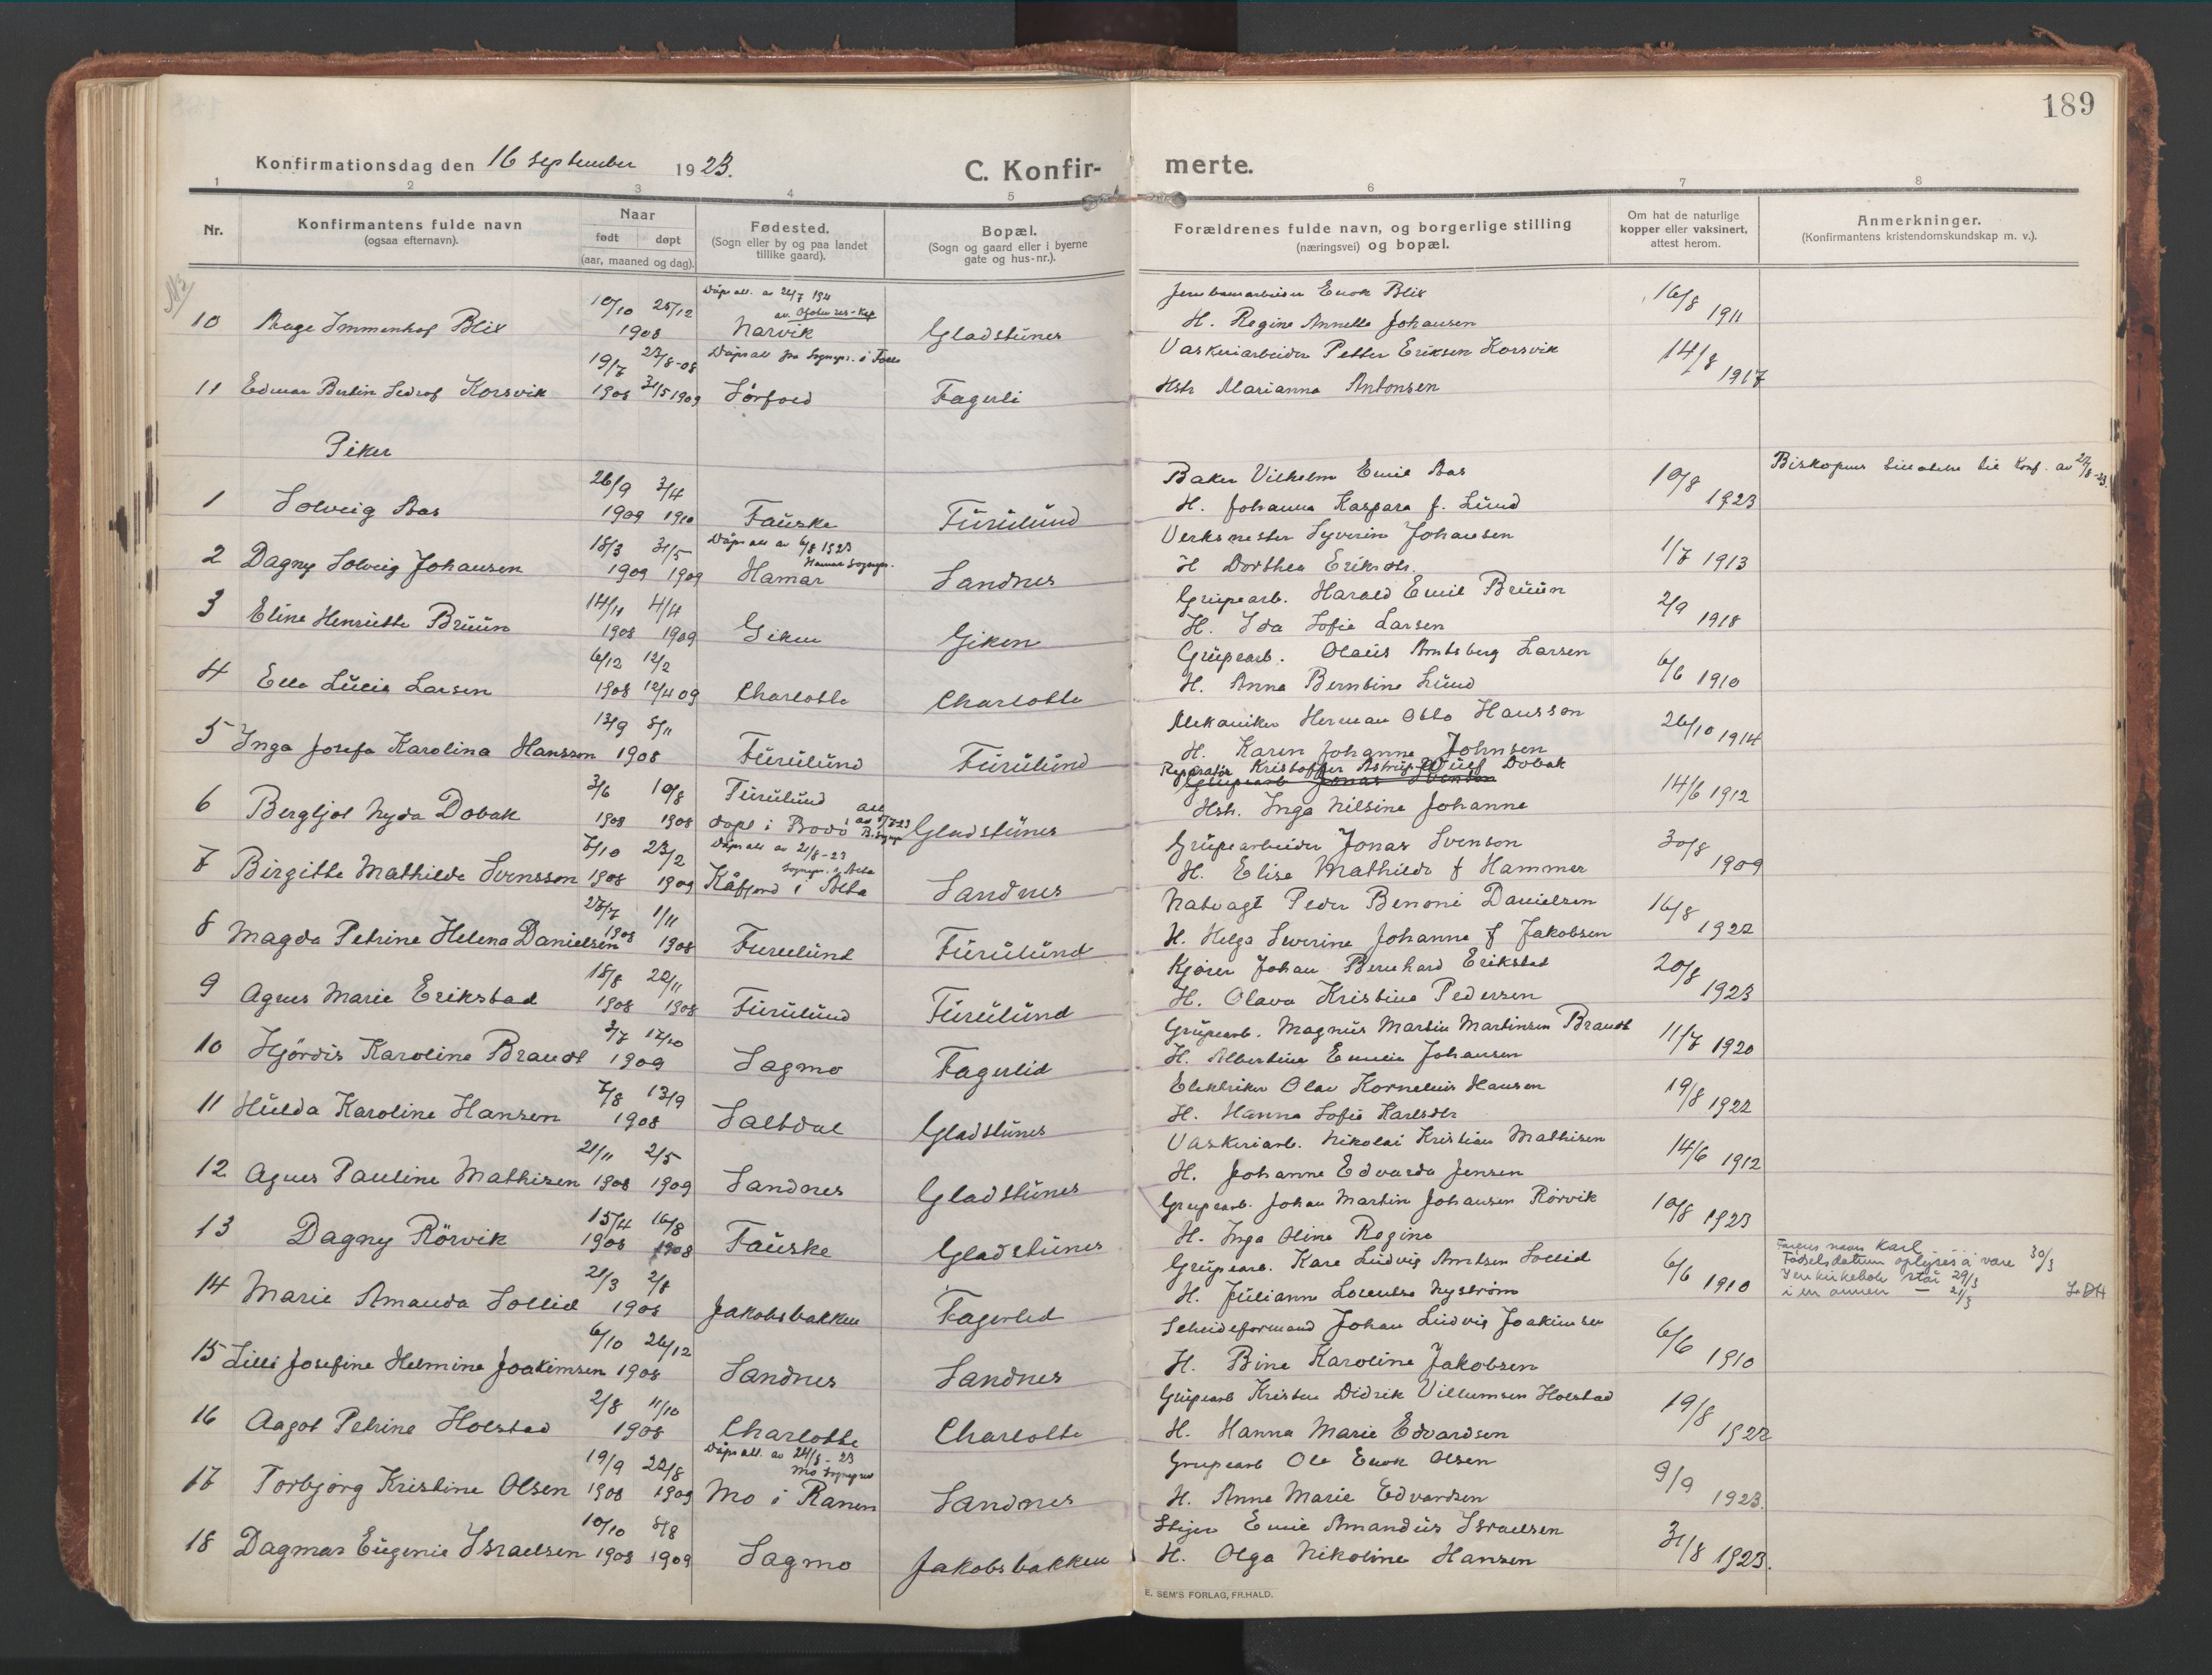 189
Konfirmationsdag den 16 September 1923.
C. Konfirmerte.
1 2 3 4 5 6 7 8
Nr.
Konfirmantens fulde navn
(ogsaa efternavn).
Naar
født døpt
(aar, maaned og dag).
Fødested.
(Sogn eller by og paa landet
tillike gaard).
Bopæl.
(Sogn og gaard eller i byerne
gate og hus-nr.).
Forældrenes fulde navn, og borgerlige stilling
(næringsvei) og bopæl.
Om hat de naturlige
kopper eller vaksinert,
attest herom.
Anmerkninger.
(Konfirmantens kristendomskundskap m. v.).
10/10 25/12 Jernbanearbeider Enok Blix 16/8
10 Aage Immenhof Blix 1908 Narvik Gladstünes H. Regine Annette Johansen 1911
19/7 23/8-08 Dåpsatt fra Sognepr. i Vaskeriarbeider Petter Eriksen Korsvik 14/8
11 Edmar Bertin Sedrof Korsvik 1908 31/5 1909 Sörfold Fagerli Hstr Marianna Antonsen 1917
Piker
26/9 3/4 Baker Vilhelm Emil Aas 10/8 Biskopens tillatelse til Konf. av 27/8-23.
1 Solveig Aas 1909 1910 Faüske Fürülünd H. Johanna Kaspara f. Lünd 1923
18/3 31/5 Dåpsatt av 6/8 1923 Hamar Sognepr. Verksmester Syverin Johansen
2 Dagny Solveig Johansen 1909 1909 Hamar Sandnes H Dorthea Eriksdtr. 1/7 1913
14/11 4/4 Grüpearb. Harald Emil Brüün 2/9
3 Eline Henriette Brüün 1908 1909 Giken Giken H. Ida Sofie Larsen 1918
6/12 12/2 Grüpearb. Olaüs Arntsberg Larsen 6/6
4 Ella Lücie Larsen 1908 12/4 09 Charlotte Charlotte H. Anna Berntine Lünd 1910
13/9 8/11 Mekaniker Herman Otto Hansson 26/10
5 Inga Josefa Karolina Hansson 1908 Fürülünd Fürülünd H. Karen Johanne Johnsen 1914
3/6 10/8 Fürülünd Reparatör Kristoffer Astrüp Wülf Dobak
Grüpearb Jonas Svenson
6 Bergljot Nyda Dobak 1908 1908 döpt i Bodö Gladstünes Hstr. Inga Nilsine Johanne 14/6 1912
7/10 23/2 Dåpsatt av 21/8-23 Grüpearbeider Jonas Svenson 30/8
7 Birgitte Mathilde Svensson 1908 1909 Kåfjord i Alta Sandnes H. Elise Mathilde f Hammer 1909
27/7 1/11 Natvagt Peder Benoni Danielsen 16/8
8 Magda Petrine Helena Danielsen 1908 1908 Furulund Fürülünd H. Helga Severine Johanne f Jakobsen 1922
18/8 22/11 Kjörer Johan Bernhard Erikstad 20/8
9 Agnes Marie Erikstad 1908 1908 Fürülünd Fürülünd H. Olava Kristine Pedersen 1923
3/7 17/10 Grüpearb. Magnüs Martin Martinsen Brandt 11/7
10 Hjördis Karoline Brandt 1909 Sagmo Fagerlid H. Albertine Emelie Johansen 1920
7/8 13/9 Elektriker Olav Kornelius Hansen 19/8
11 Hülda Karoline Hansen 1908 Saltdal Gladstünes H. Hanna Sofie Karlsdtr 1922
21/11 2/5 Vaskeriarb. Nikolai Kristian Mathisen 14/6
12 Agnes Pauline Mathisen 1908 1909 Sandnes Gladstünes H. Johanne Edvarda Jensen 1912
15/4 16/8 Grüpearb. Johan Martin Johansen Rörvik 10/8
13 Dagny Rörvik 1908 1908 Faüske Gladstünes H. Inga Oline Regine 1923
21/3 2/8 Grüpearb. Kare Lüdvig Arntsen Sollid 6/6
14 Marie Amanda Sollid 1908 Jakobsbakken Fagerlid H. Jülianne Lorentse Nyström 1910
Farens navn Karl
Födselsdatum oplyses å være 30/3
I en kirkebok står 29/3
i en annen — 21/3
6/10 26/12 Scheideformand Johan Lüdvig Joakimsen 6/6
15 Lilli Josefine Helmine Joakimsen 1908 Sandnes Sandnes H. Bine Karoline Jakobsen 1910
2/8 11/10 Grüpearb Kristen Didrik Villumsen Holstad 19/8
16 Aagot Petrine Holstad 1908 Charlotte Charlotte H. Hanna Marie Edvardsen 1922
19/9 22/8 Dåpsatt. av 24/8-23 Mo Sognepr Grüpearb Ole Enok Olsen 9/9
17 Torbjörg Kristine Olsen 1908 1909 Mo i Ranen Sandnes H. Anne Marie Edvardsen 1923.
10/10 8/8 Stiger Emil Amandüs Israelsen 31/8
18 Dagmar Eügenie Israelsen 1908 1909 Sagmo Jakobsbakken H. Olga Nikoline Hansen 1923.
E. SEM'S FORLAG, FR.HALD.